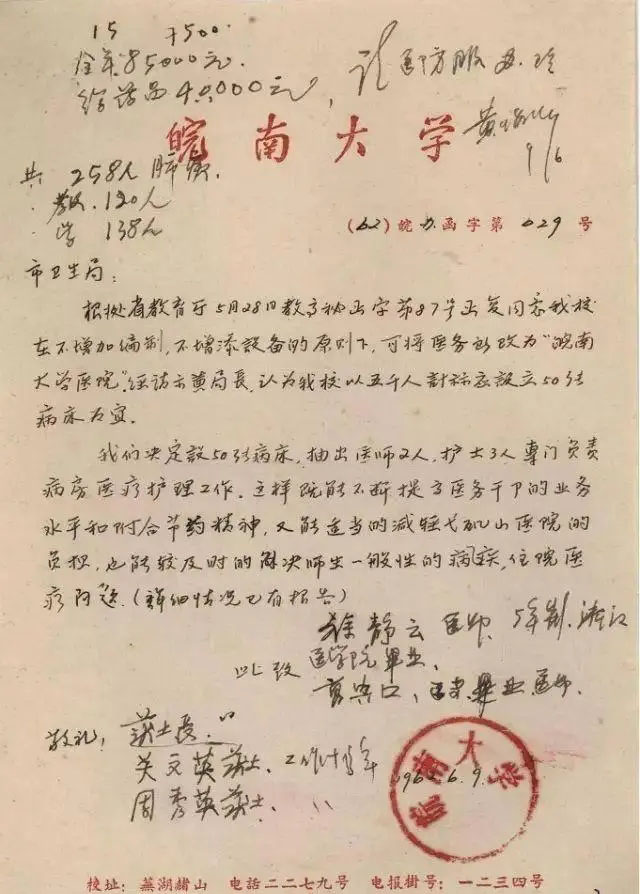 15 7500
全年85000元.
给药品40000元,
请医防服务
皖南大学
黄
9/6
共 258人肺病.
教.120人
学 138人
(62)皖办函字第029号
市卫生局:
根据省教育厅5月28日教高秘函字第87号函复同意我校
在不增加编制,不增添設备的原则下,可将医务所改为“皖南
大学医院”.经请示黄局長,认为我校以五千人計标应設立50張
病床为宜.
我们决定設50張病床,抽出医师2人,护士3人專门负责
病房医疗护理工作.这样既能不断提高医务干部的业务
水平和附合节約精神,又能适当的减軽弋矶山医院的
负担,也能较及时的解决师生一般性的病疾,住院医
疗问题.(詳细情况已有报告)
徐静云医师.5年制.浙江
医学院畢业.
此致
畢业医师.
敬礼!
護士長:
关文英護士.工作十多年
周秀英護士.〃
1962.6.9.
皖南大学
校址:蕪湖赭山 電話二二七九號 电报掛号:一二三四号